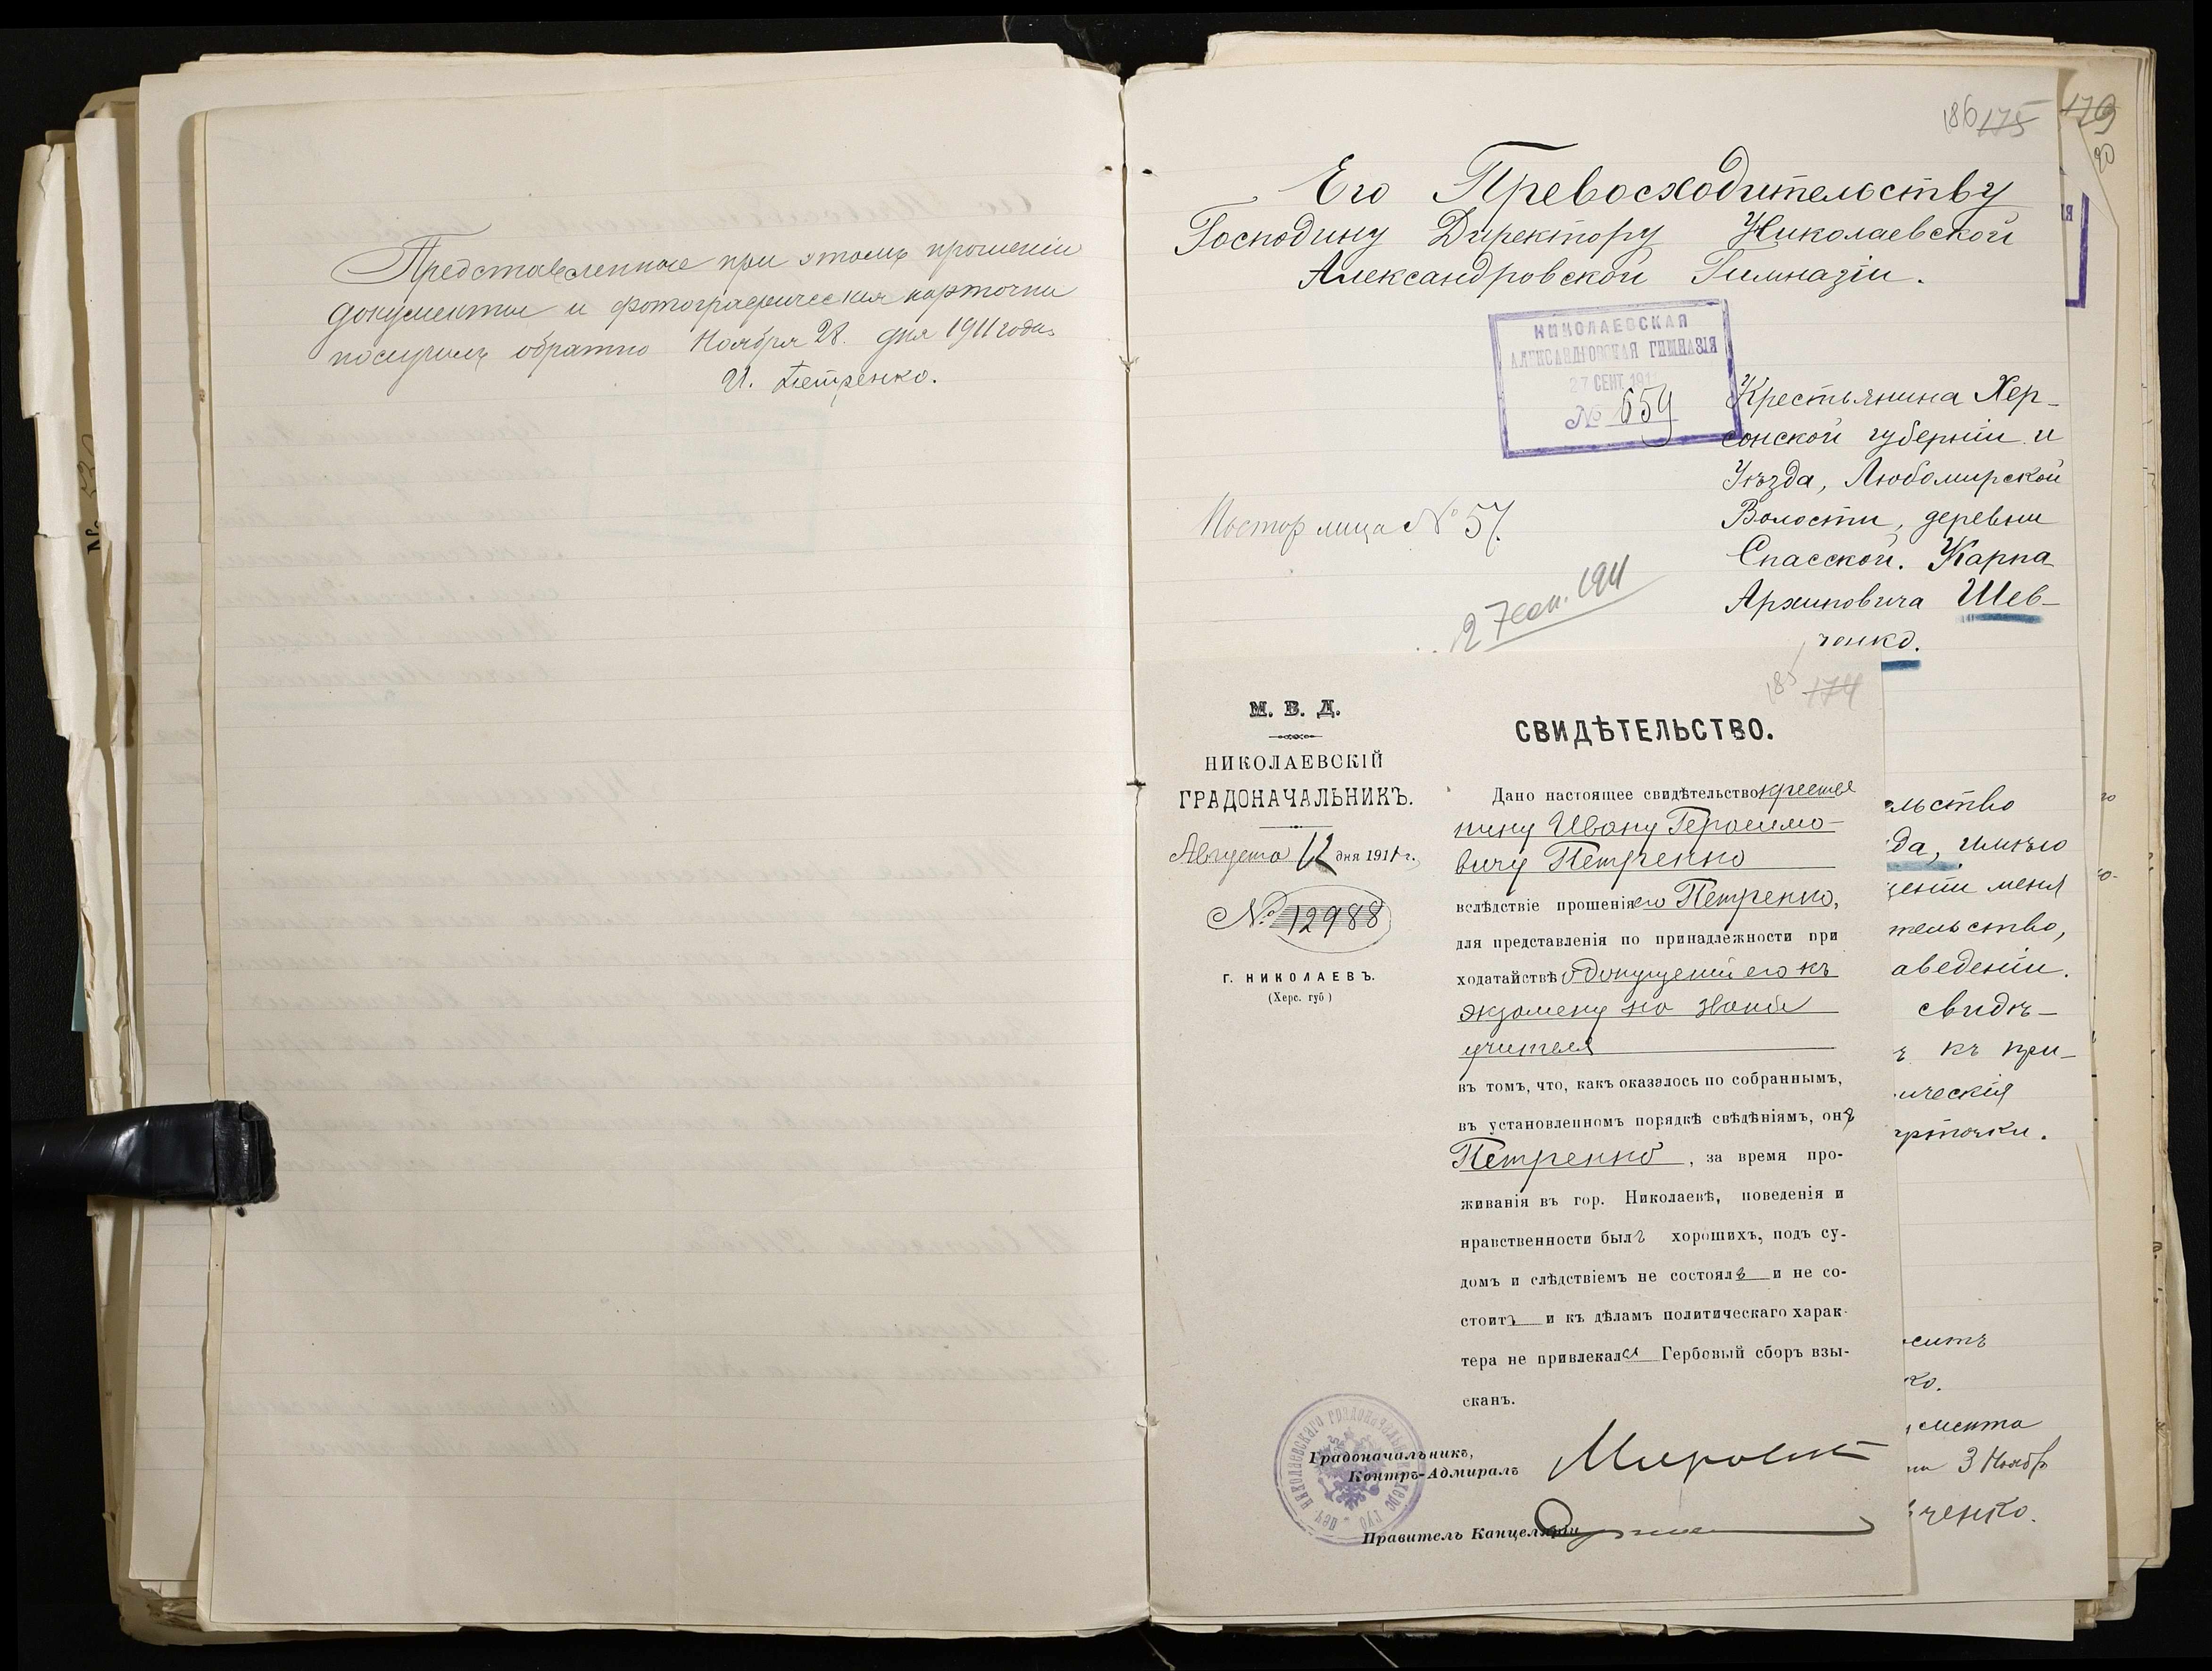 Представленные при этомъ прошеніи
документы и фотографическія карточки
получилъ обратно Ноября 28. дня 1911 года
И. Петренко.
186 175
179
Его Превосходительству
Господину Директору Николаевской
Александровской Гимназіи.
НИКОЛАЕВСКАЯ
АЛЕКСАНДРОВСКАЯ ГИМНАЗІЯ
27 СЕНТ. 191
№ 659
Крестьянина Хер-
сонской губерніи и
Уѣзда, Любомирской
Волости, деревни
Спасской. Карпа
Архиповича Шев-
ченко.
Постор лица № 57.
27 сен. 1911
185 174
М. В. Д.
НИКОЛАЕВСКІЙ
ГРАДОНАЧАЛЬНИКЪ.
Августа 12 дня 1911 г.
№ 12988
Г. НИКОЛАЕВЪ.
(Херс. губ)
СВИДѢТЕЛЬСТВО.
Дано настоящее свидѣтельство крестья
нину Ивану Герасимо-
вичу Петренко
вслѣдствіе прошенія его Петренко,
для представленія по принадлежности при
ходатайствѣ о допущеніи его къ
экзамену на званіе
учителя
въ томъ, что, какъ оказалось по собраннымъ,
въ установленномъ порядкѣ свѣдѣніямъ, онъ
Петренко, за время про-
живанія въ гор. Николаевѣ, поведенія и
нравственности былъ хорошихъ, подъ су-
домъ и слѣдствіемъ не состоялъ и не со-
стоитъ и къ дѣламъ политическаго харак-
тера не привлекался Гербовый сборъ взы-
сканъ.
Градоначальникъ,
Контръ-Адмиралъ
Правитель Канцеляріи
ельство
да, имѣю
щеніи меня
тельство,
аведеніи.
свидѣ-
ъ къ при-
ическія
арточки.
оситъ
ко.
мента
3 Ноябр
ченко.